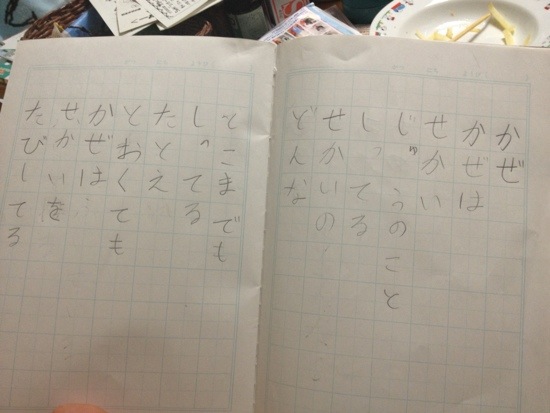 かぜ
かぜは
せかい
じゅうのこと
しってる
せかいの
どんな
とこまでも
しってる
たとえ
とおくても
かぜは
せかいを
たびしてる